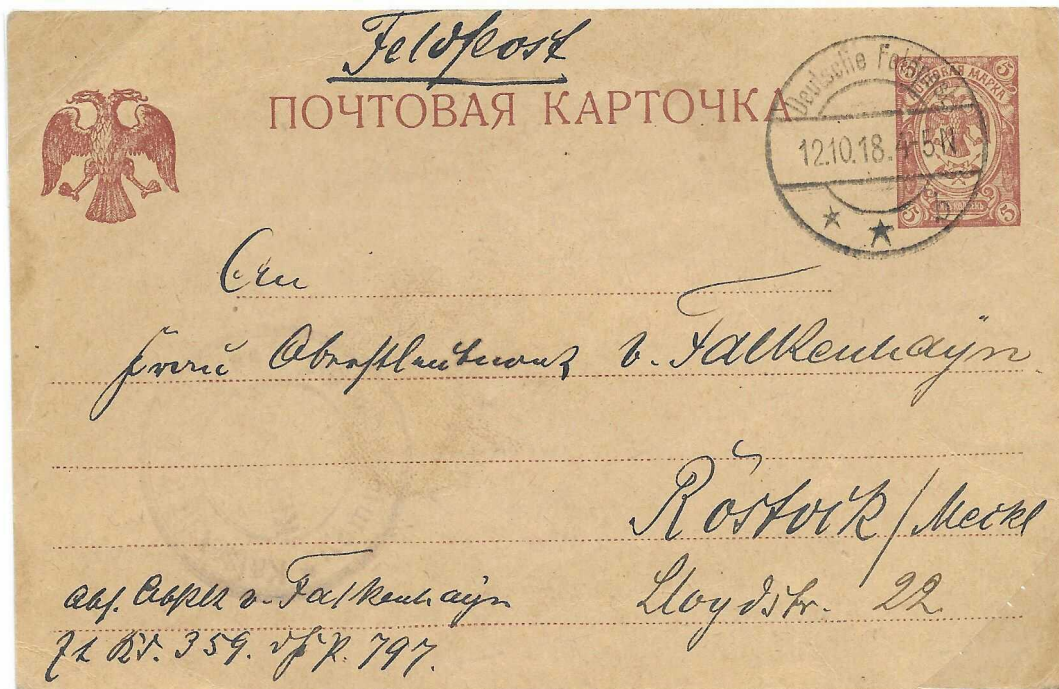 Feldpost
ПОЧТОВАЯ КАРТОЧКА
Deutsche Feldpost
12.10.18. 4-5N
b
ПОЧТОВАЯ МАРКА
5 5
5 5
An
Frau Oberstleutnant v. Falkenhayn
Rostock / Meckl
Lloydstr. 22
Abs. v. Falkenhayn
359. 797.